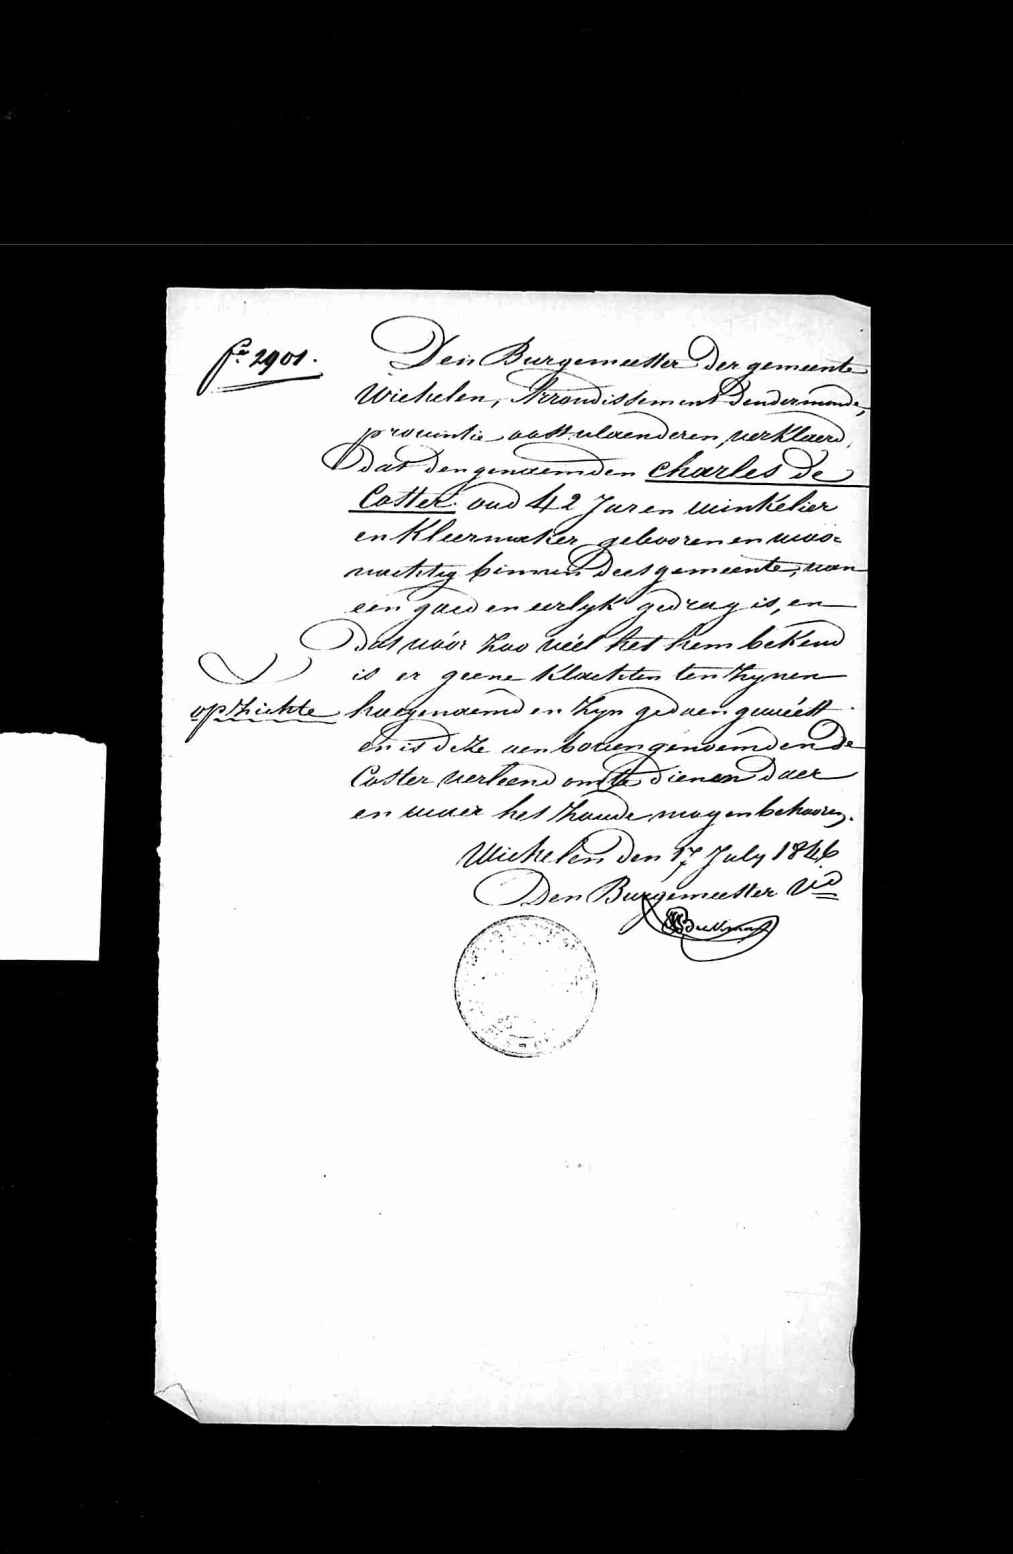 fo 2901.
Den Burgemeester der gemeente
Wichelen, Arrondissement Dendermonde,
provintie oostvlaenderen, verklaerd,
dat den genaemden charles de
Coster oud 42 Jaren winkelier
en Kleermaker gebooren en woo=
nachtig binnen dees gemeente, van
een goed en eerlyk gedrag is, en
dat vóór zoo véél het hem bekend
is er geene klachten ten zynen
opzichte
haegenaemd en zyn gedaen gewéést
en is deze aen bovengenoemden De
Coster verleend om te dienen daer
en waer het zoude mogen behooren.
Wichelen den 17 July 1846
Den Burgemeester Vd